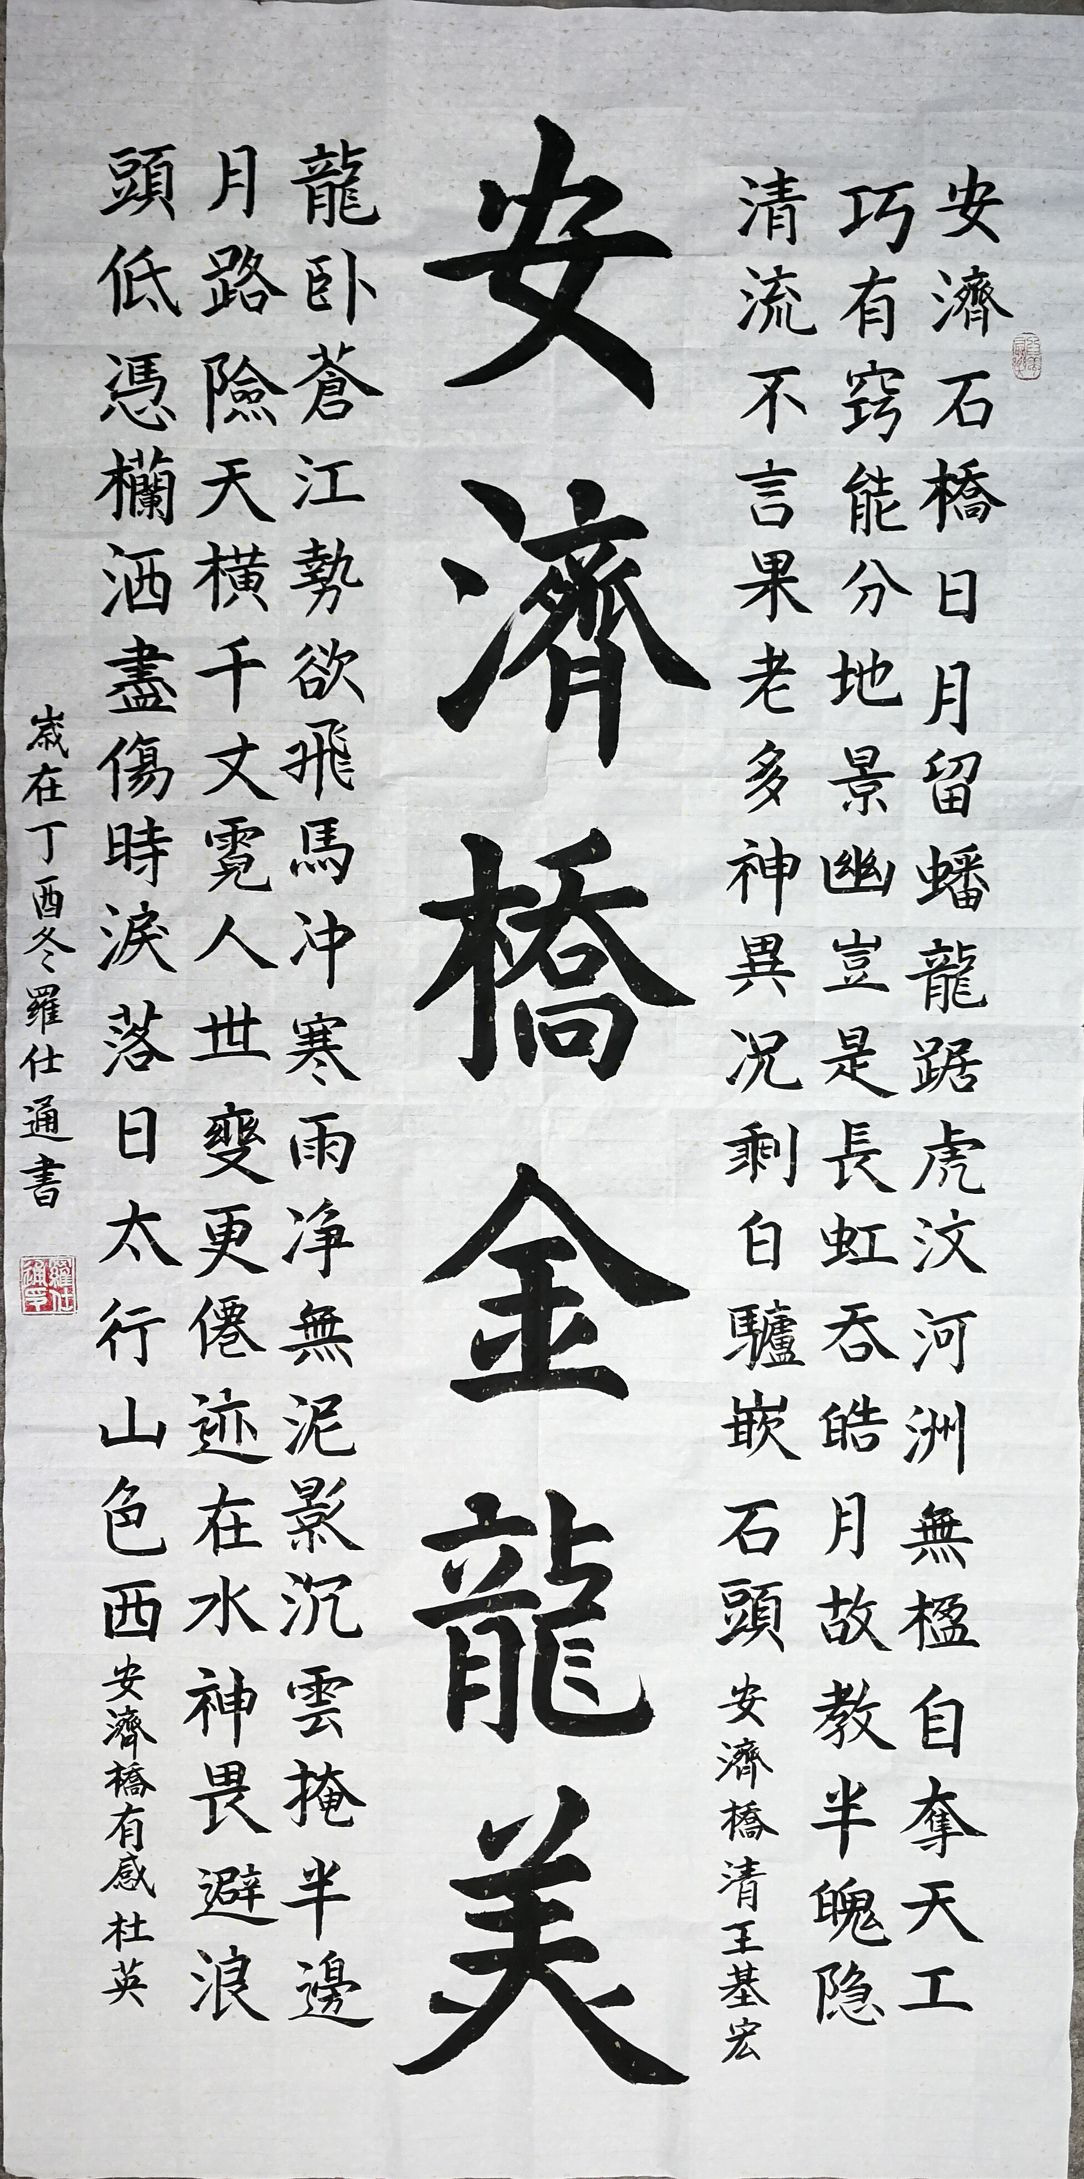 安濟石橋日月留蟠龍踞虎汶河洲無楹自奪天工
巧有窍能分地景幽豈是長虹吞皓月故教半魄隐
清流不言果老多神異况剩白驢嵌石頭 安濟橋清王基宏
安濟橋金龍美
龍卧蒼江勢欲飛馬冲寒雨净無泥影沉雲掩半邊
月路險天橫千丈霓人世變更僊迹在水神畏避浪
頭低憑欄洒盡傷時淚落日太行山色西 安濟橋有感 杜英
歲在丁酉冬羅仕通書
羅仕通印